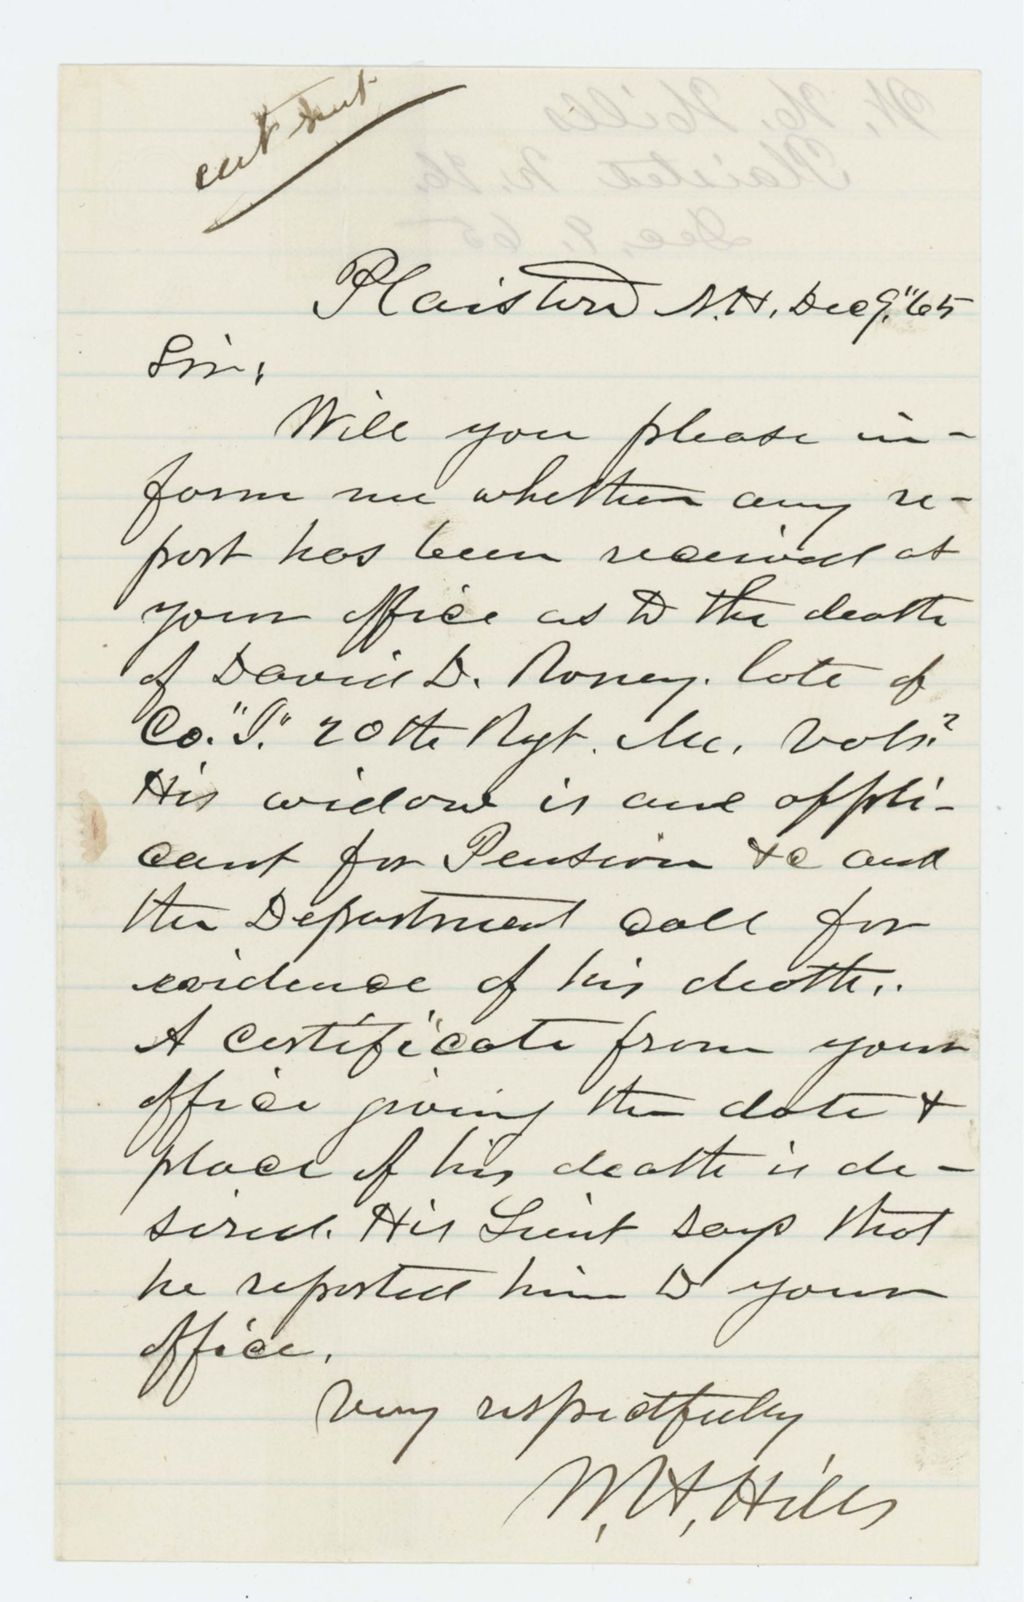 cert sent
Plaistow N.H, Dec 9,"65
Sir;
Will you please in-
form me whether any re-
port has been received at
your office as to the death
of David D. Roney. late of
Co. "I." 20th Regt. Me. Vols.?
His widow is and appli-
cant for Pension &c and
the Department call for
evidence of his death..
A certificate from your
office giving the date &
place of his death is de-
sired. His Lieut says that
he reported him to your
office.
Very respectfully
W, H, Hills
W. H. Hills
Plaistow N. H.
Dec. 9, 65